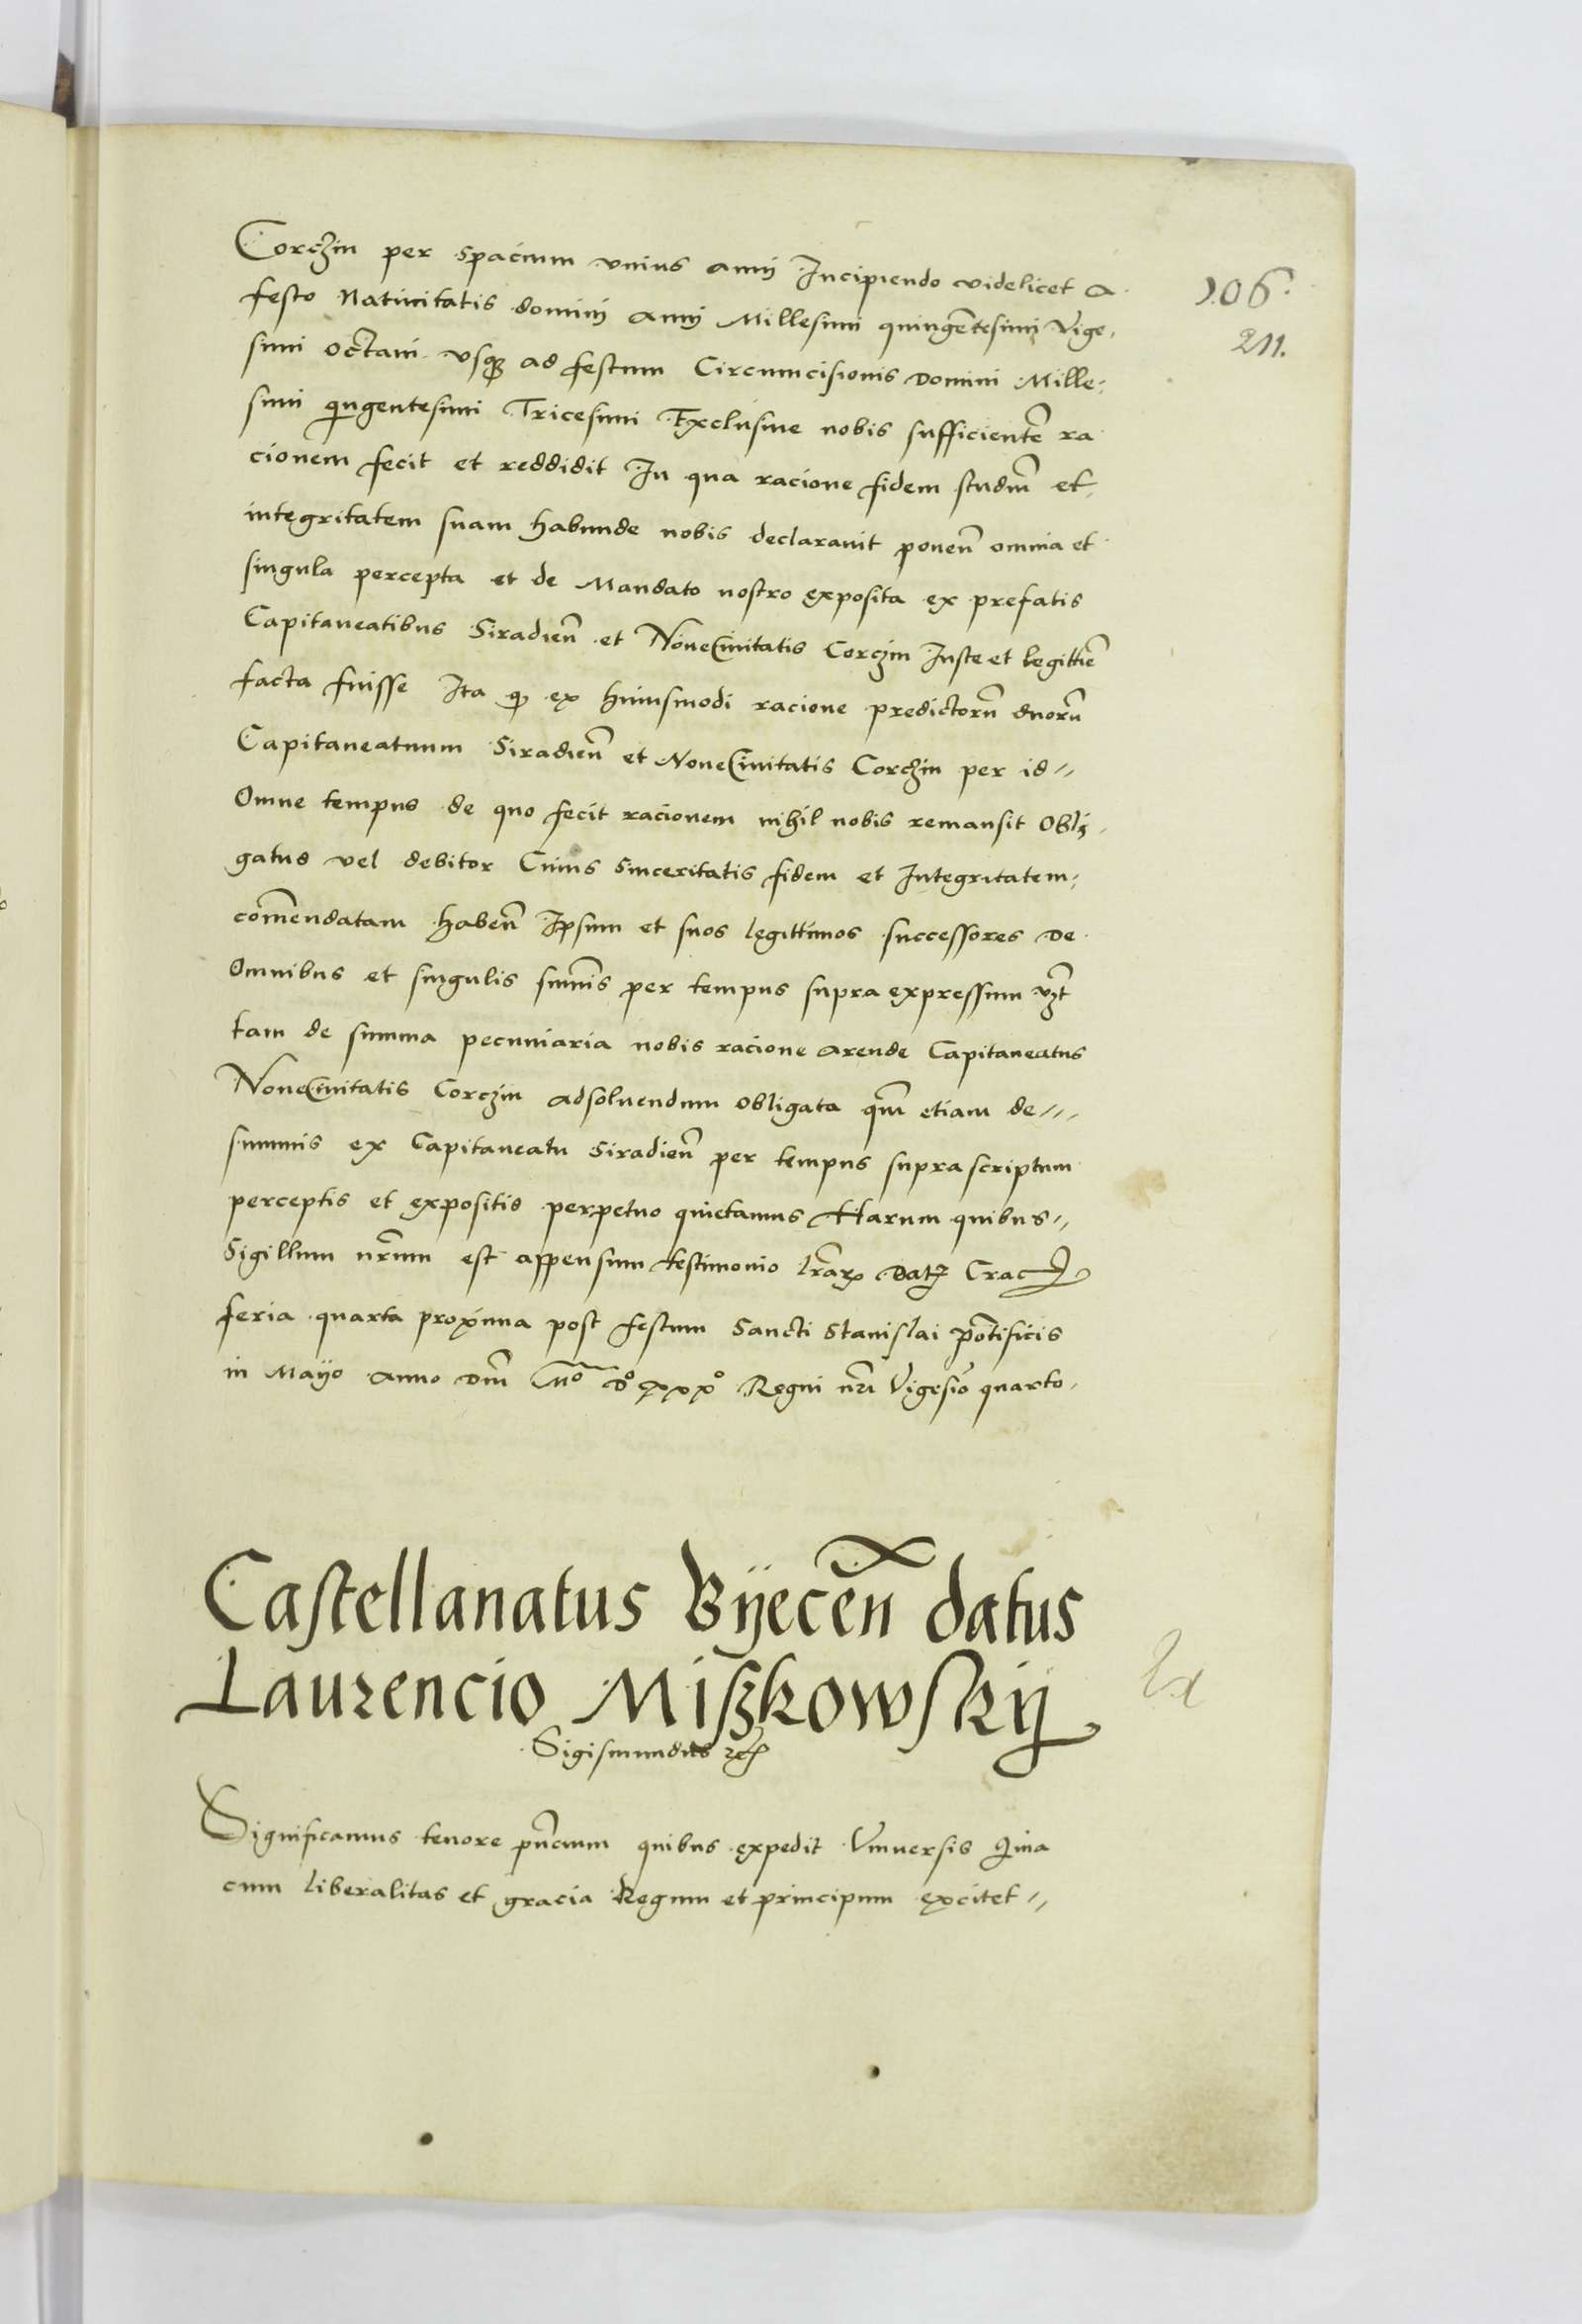 Corczin per spacium vnius anni Incipiendo videlicet a
106.
festo Natiuitatis domini anni Millesimi quingētesimi Vige-
211.
simi octaui vsq3 ad festum Circumcisionis Domini Mille-
simi qingentesimi Tricesimi Exclusiue nobis sufficientē ra
cionem fecit et reddidit In qua racione fidem studiū et
integritatem suam habunde nobis declarauit ponen̄ omnia et
singula percepta et de Mandato nostro exposita ex prefatis
Capitaneatibus Siradien̄ et NoueCiuitatis Corczin Iuste et legittīe
facta fuisse Ita q ex huiusmodi racione predictorū duorū
Capitaneatuum Siradien̄ et NoueCiuitatis Corczin per id
Omne tempus de quo fecit racionem nihil nobis remansit Obli-
gatus vel debitor Cuius Sinceritatis fidem et Integritatem
comēndatam haben̄ Ipsum et suos legittimos successores De
Omnibus et singulis sum̄is per tempus supra expressum vz̄t
tam de summa pecuniaria nobis racione arende Capitaneatus
NoueCiuitatis Corczin adsoluendum obligata qm̄ etiam de
summis ex Capitaneatu Siradien̄ per tempus suprascriptum
perceptis et expositis perpetuo quietamus Harum quibus
Sigillum nr̄um est appensum testimonio lr̄arꝝ Datꝝ Crac
feria quarta proxima post festum Sancti Stanislai pōtificis
in Mayo anno Dm̄ Mº Dº xxxº Regni nr̄i Vigesīo quarto
Castellanatus Byecen̄ datus
Laurencio Miszkowsky
Sigismundus rex
Significamus tenore pn̄cium quibus expedit Vniuersis Qina
cum liberalitas et gracia Regum et principum excitet